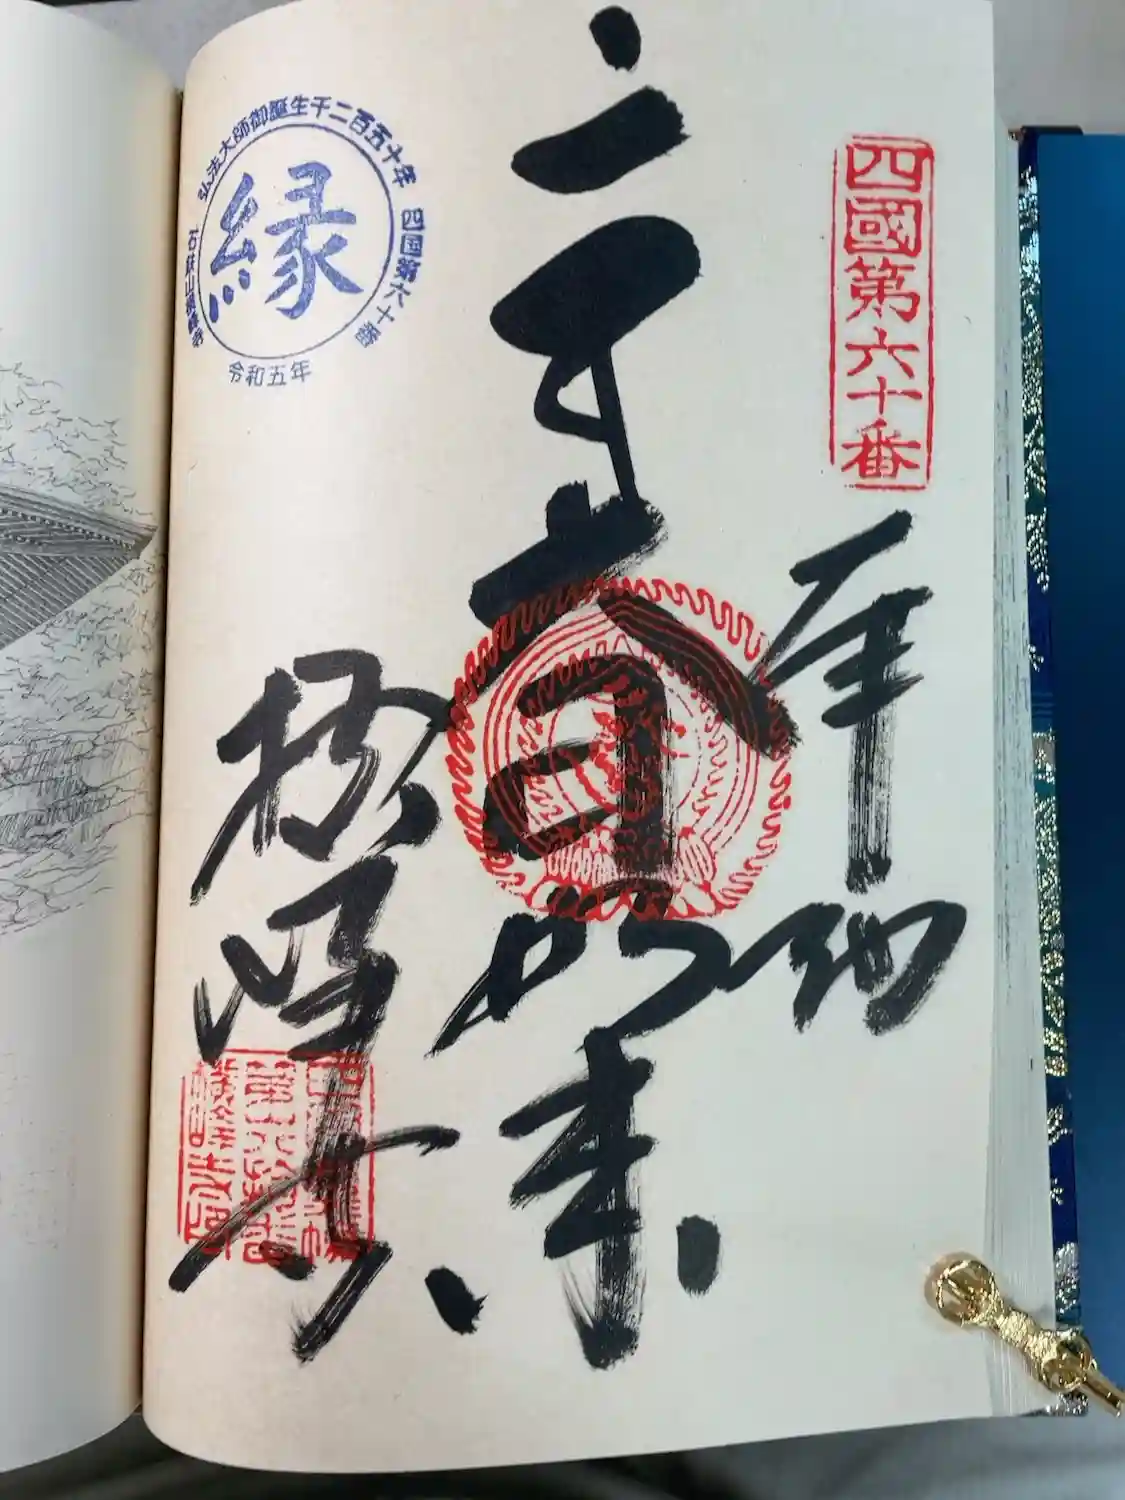 四國第六十番
奉納
大日如来
横峰寺
弘法大師御誕生千二百五十年
四国第六十番
石鈇山横峰寺
縁
令和五年